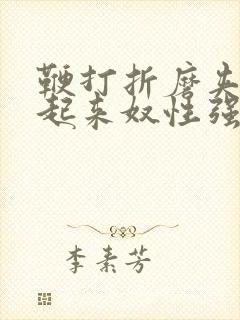 鞭打折磨夹
起来奴性强
李素芳